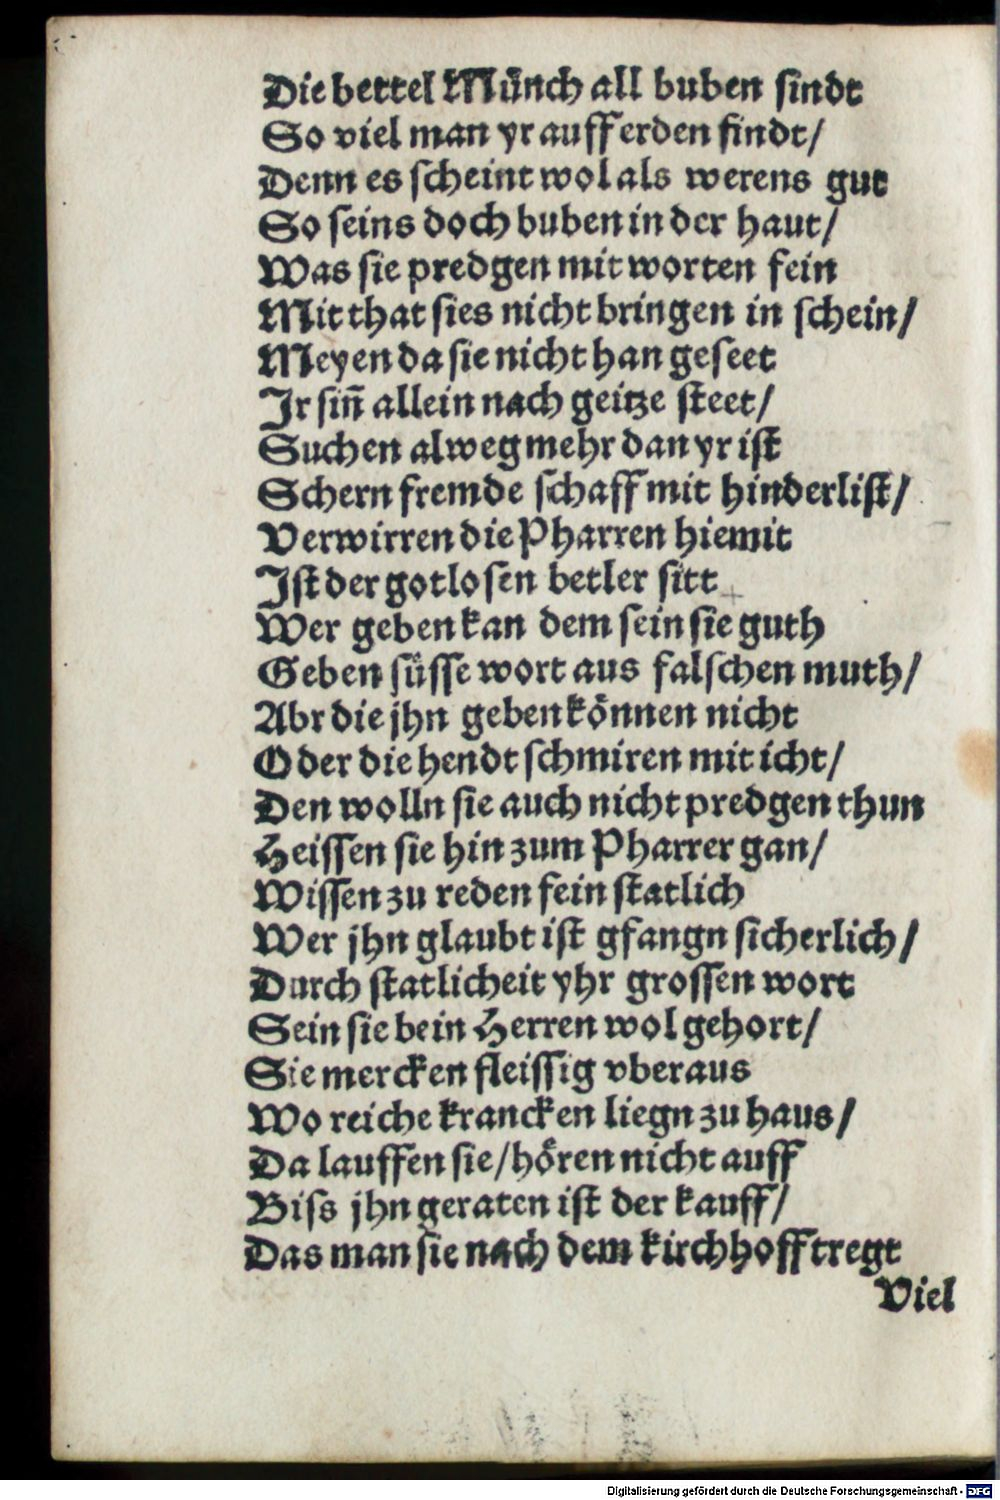 Die bettel Münch all buben sindt
So viel man yr auff erden findt/
Denn es scheint wol als werens gut
So seins doch buben in der haut/
Was sie predgen mit worten fein
Mit that sies nicht bringen in schein/
Meyen da sie nicht han geseet
Jr sin̄ allein nach geitze steet/
Suchen alweg mehr dan yr ist
Schern fremde schaff mit hinderlist/
Verwirren die Pharren hiemit
Jst der gotlosen betler sitt
Wer geben kan dem sein sie guth
Geben süsse wort aus falschen muth/
Abr die jhn geben können nicht
Oder die hendt schmiren mit icht/
Den wolln sie auch nicht predgen thun
Heissen sie hin zum Pharrer gan/
Wissen zu reden fein statlich
Wer jhn glaubt ist gfangn sicherlich/
Durch statlicheit yhr grossen wort
Sein sie bein Herren wol gehort/
Sie mercken fleissig vberaus
Wo reiche krancken liegn zu haus/
Da lauffen sie/hören nicht auff
Biss jhn geraten ist der kauff/
Das man sie nach dem kirchhoff tregt
Viel
Digitalisierung gefördert durch die Deutsche Forschungsgemeinschaft - DFG